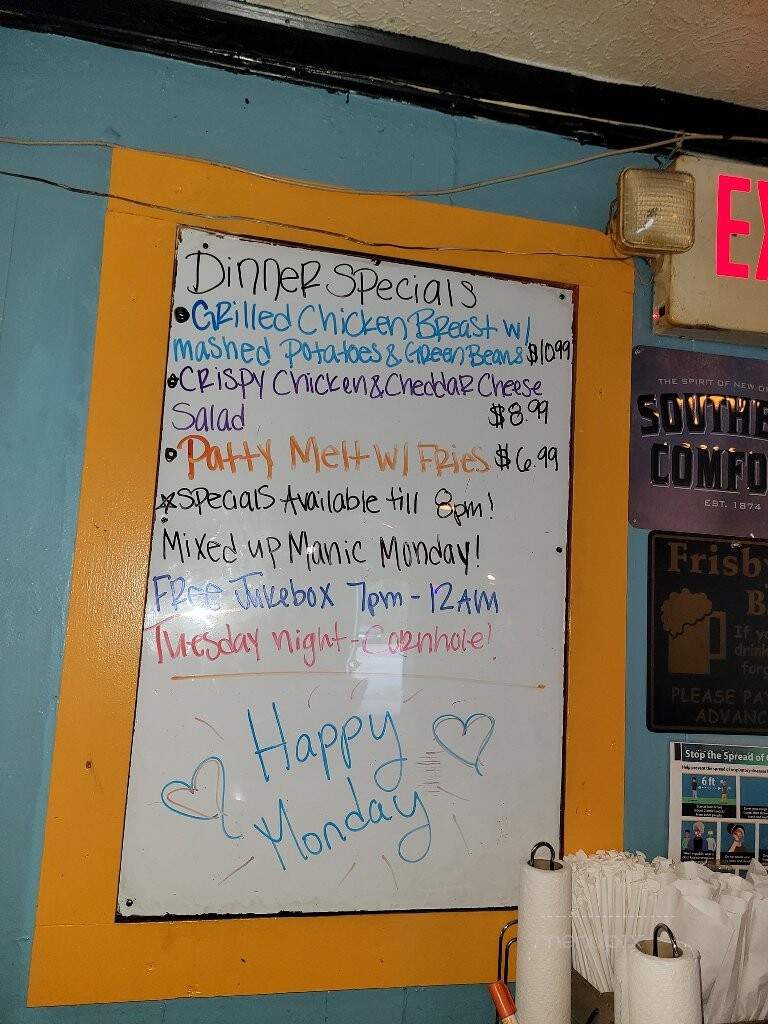 Dinner Specials
• Grilled Chicken Breast w/
mashed Potatoes & Green Beans $10.99
• Crispy Chicken & Cheddar Cheese
Salad $8.99
• Patty Melt w/ Fries $6.99
☆ Specials Available till 8pm!
Mixed up Manic Monday!
Free Jukebox 7pm - 12AM
Tuesday night - Cornhole!
Happy
Monday
EX
THE SPIRIT OF NEW O
SOUTHE
COMFO
EST. 1874
Frisby
B
If yo
drink
forg
PLEASE PAY
ADVANC
Stop the Spread of
6 ft